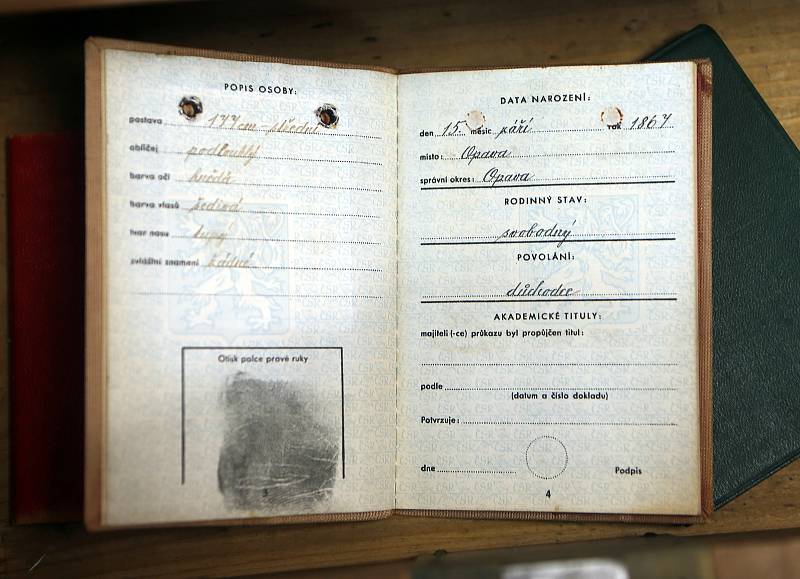 POPIS OSOBY:
postava 177 cm - střední
obličej podlouhlý
barva očí hnědá
barva vlasů šedivá
tvar nosu tupý
zvláštní znamení žádné
Otisk palce pravé ruky
3
DATA NAROZENÍ:
den 15. měsíc září rok 1867
místo: Opava
správní okres: Opava
RODINNÝ STAV:
svobodný
POVOLÁNÍ:
důchodce
AKADEMICKÉ TITULY:
majiteli (-ce) průkazu byl propůjčen titul:
podle
(datum a číslo dokladu)
Potvrzuje:
dne
Podpis
4